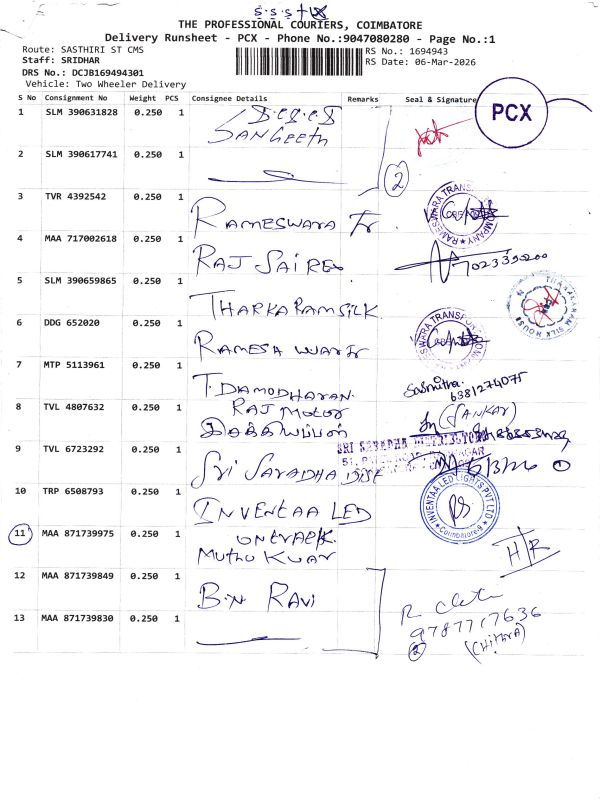 THE PROFESSIONAL COURIERS, COIMBATORE
Delivery Runsheet - PCX - Phone No.:9047080280 - Page No.:1
Route: SASTHIRI ST CMS
RS No.: 1694943
Staff: SRIDHAR
RS Date: 06-Mar-2026
DRS No.: DCJB169494301
Vehicle: Two Wheeler Delivery
S No Consignment No Weight PCS Consignee Details Remarks Seal & Signature
PCX
1 SLM 390631828 0.250 1
SANGEETH
2 SLM 390617741 0.250 1
2
3 TVR 4392542 0.250 1 RAMESWARA Tr.
4 MAA 717002618 0.250 1 RAJ SAIREE
5 SLM 390659865 0.250 1 THARKARAM SILK
6 DDG 652020 0.250 1
7 MTP 5113961 0.250 1 T. DAMODHARAN
Sasmitha
6381274075
8 TVL 4807632 0.250 1 RAJ MOTOR
(SANKAR)
இசக்கியப்பன்
SRI SARADHA DISTRIBUTOR
9 TVL 6723292 0.250 1 SRI SARADHA DIST 1
10 TRP 6508793 0.250 1 INVENTAA LED
INVENTAA LED LIGHTS PVT LTD
Coimbatore
11 MAA 871739975 0.250 1
MUTHU KUAR
H/R
12 MAA 871739849 0.250 1 B.N RAVI
13 MAA 871739830 0.250 1
9787717636
(CHITHRA)
2